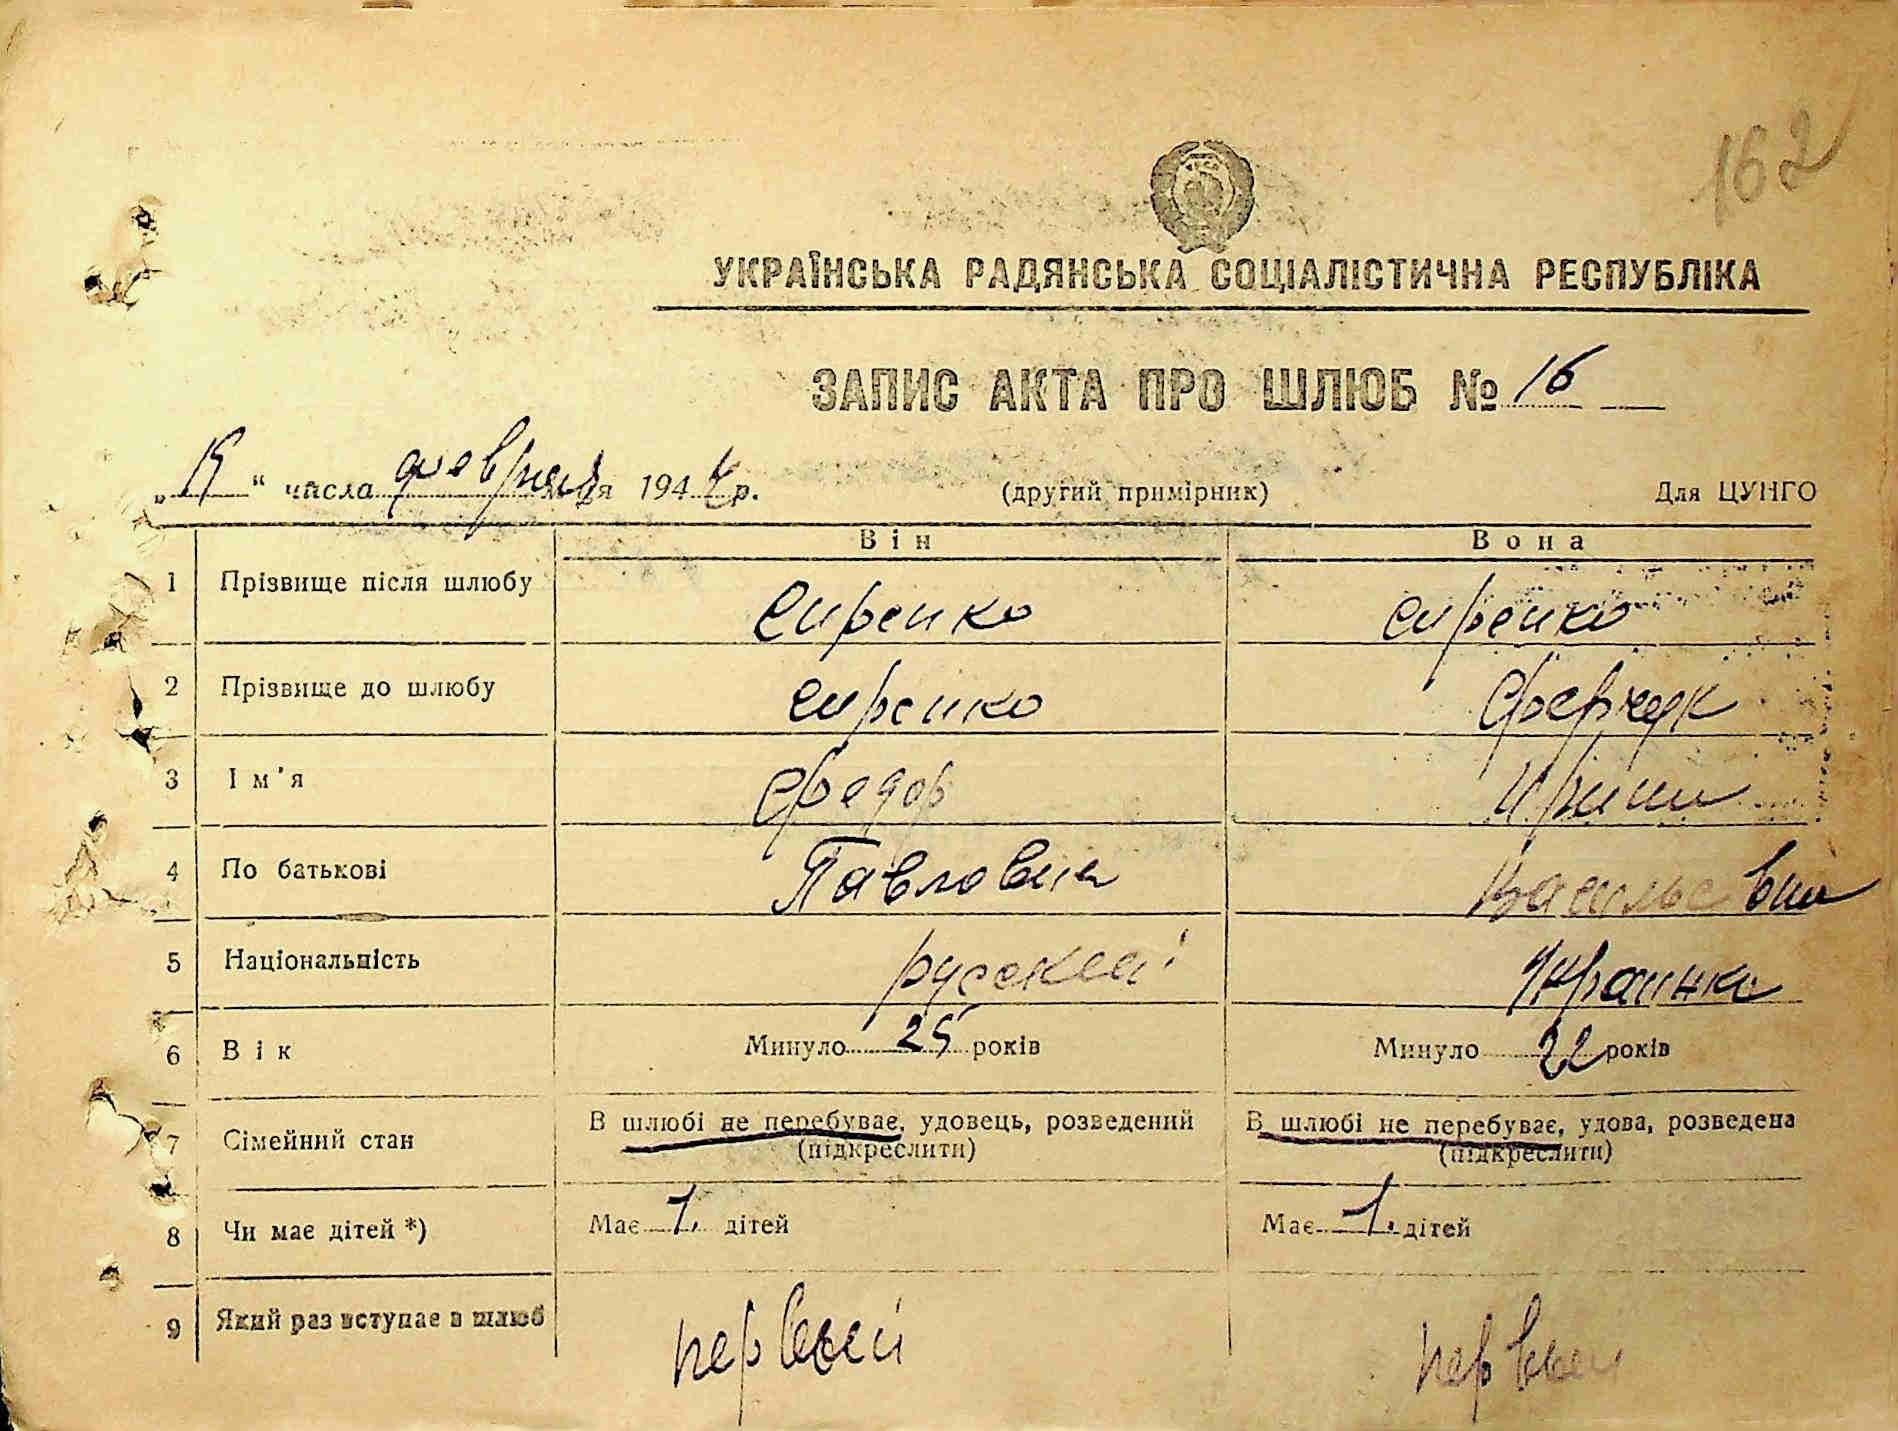 162
УКРАЇНСЬКА РАДЯНСЬКА СОЦІАЛІСТИЧНА РЕСПУБЛІКА
ЗАПИС АКТА ПРО ШЛЮБ № 16
„ “ числа февраля 1944 р. (другий примірник) Для ЦУНГО
Він Вона
1 Прізвище після шлюбу Сиренко Сиренко
2 Прізвище до шлюбу Сиренко
3 Ім'я Федор Ирина
4 По батькові Павлович Васильевна
5 Національність русский Украинка
6 Вік Минуло 25 років Минуло 22 років
7 Сімейний стан В шлюбі не перебуває, удовець, розведений В шлюбі не перебуває, удова, розведена
(підкреслити) (підкреслити)
8 Чи має дітей *) Має 1. дітей Має 1. дітей
9 Який раз вступає в шлюб первый первый